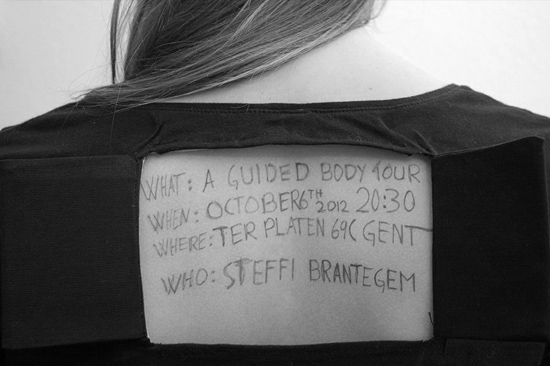 WHAT: A GUIDED BODY TOUR
WHEN: OCTOBER 6TH 2012 20:30
WHERE: TER PLATEN 69C GENT
WHO: STEFFI BRANTEGEM